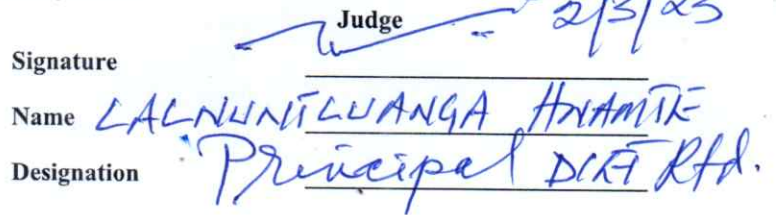 Judge 2/3/23
Signature
Name LALNUNTLUANGA HNAMTE
Designation Principal DIET Rtd.